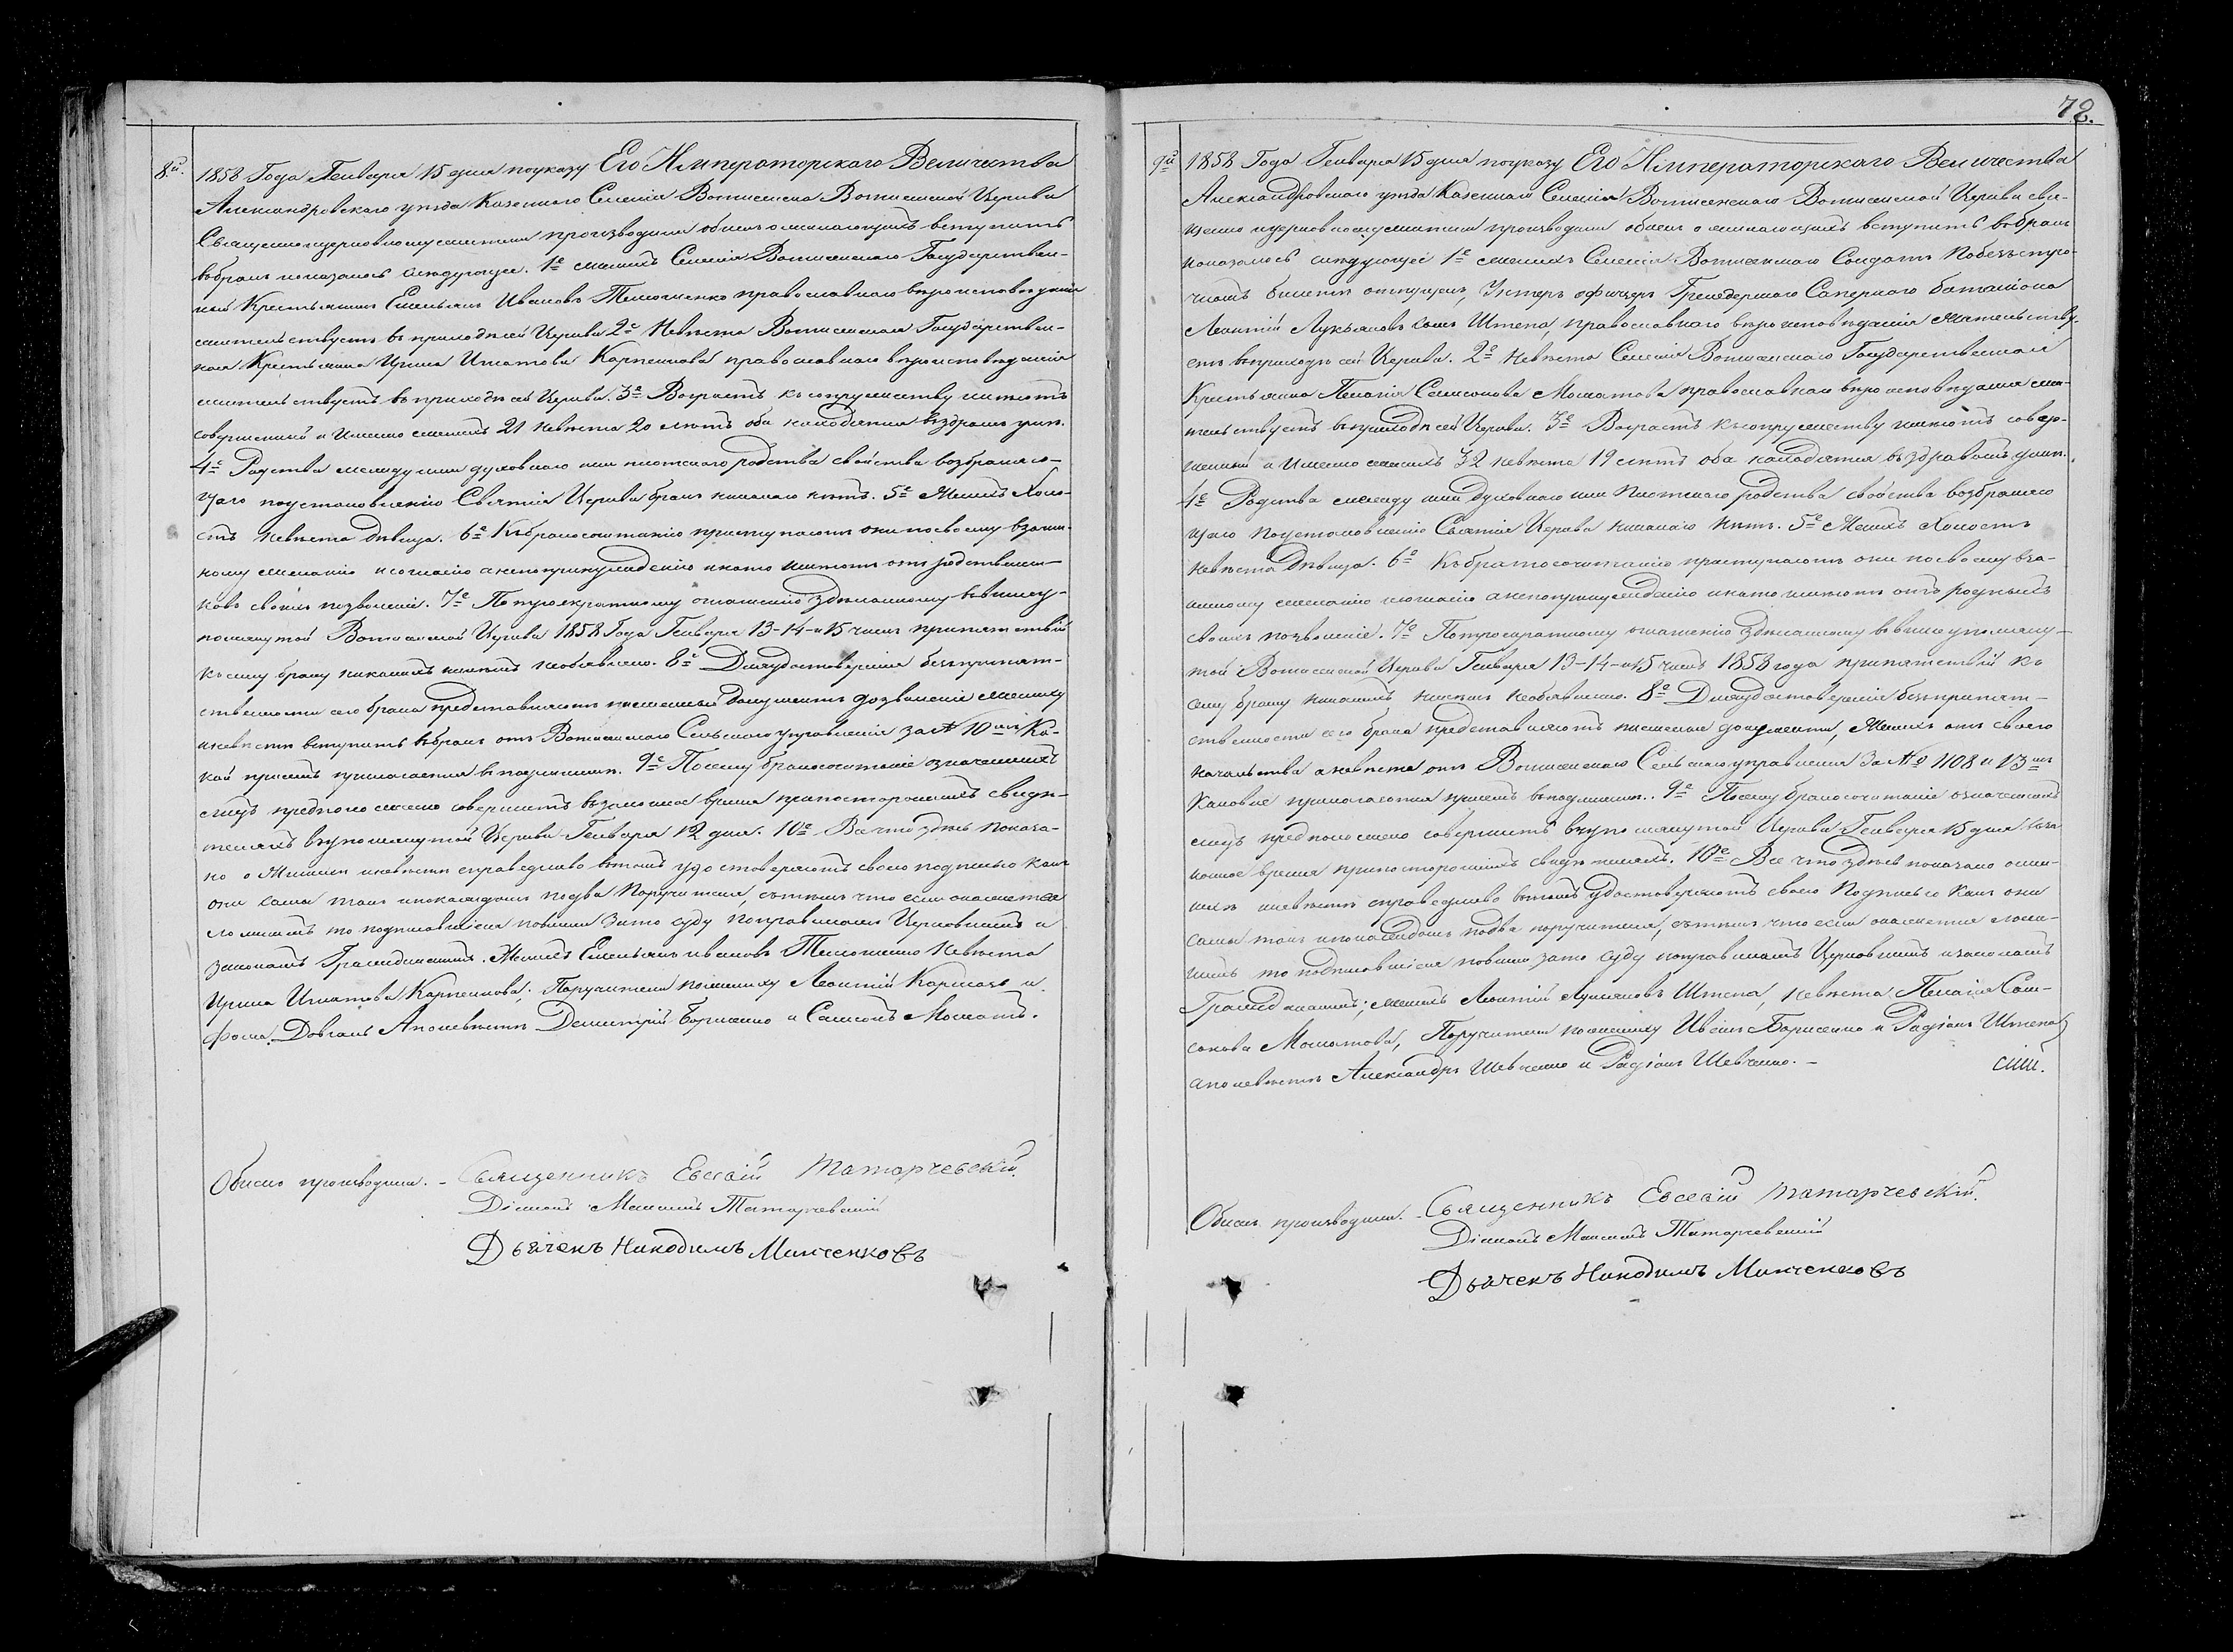 8й. 1858 Года Генваря 15 дня поуказу Его Императорскаго Величества
Александровскаго уезда Казенного Селенія Воскресенской Церкви
Священноцерковнослужители производили обыскъ о желающихъ вступить
вбракъ и оказалось следующее. 1е женихъ Селенія Государствен-
ный Крестьянинъ Емельянъ Ивановъ Тимошенко православнаго вероисповеданія
жительствуетъ въ приходе сей Церкви 2е Невеста Государствен-
ная Крестьянка Ирина Игнатова Карпенкова православнаго вероисповеданія
жительствуетъ въ приходе сей Церкви. 3е Возрастъ къ сопружеству имеютъ
совершенный а Именно женихъ 21 невеста 20 летъ оба находятся въздравомъ уме.
4е Родства между ими духовнаго или плотскаго родства свойства возбраняю-
щаго поустановленію Святыя Церкви бракъ никакаго нетъ. 5е Женихъ Холо-
стъ Невеста девица. 6е Къбракосочетанію приступаютъ они посвоему взаим-
ному желанію исогласію анепопринужденію инато имеютъ отъ родственни-
ковъ своихъ позволеніе. 7е Потроекратному оглашенію зделанному ввышеу-
помянутой Церкви 1858 Года Генваря 13-14-и 15 чиселъ препятствій
къ сему браку никакихъ никемъ необъявлено. 8е Дляудостоверенія безпрепят-
ственности сего брака представляютъ писменный документъ дозволеніе жениху
иневесте вступить вбракъ отъ Сельскаго управленія за № 10мъ Ка-
кой присемъ прилагается вподлиннике. 9е Посему бракосочетаніе означенныхъ
лицъ предположено совершить въ законное время припостороннихъ свиде-
теляхъ вупомянутой Церкви Генваря 12 дня. 10е Все что здесь показа-
но о Женихе иневесте справедливо втомъ удостоверяютъ своею подписью какъ
они сами такъ ипокаждомъ подва Поручителя, стемъ что если окажется
ложнымъ то подписавшіеся повинны зато суду поправиламъ Церковнымъ и
законамъ Гражданскимъ. Женихъ Емельянъ ивановъ Тимошенко Невеста
Ирина Игнатова Карпенкова; Поручители пожениху Леонтій и
Фома Довгаль Апоневесте Димитрій Борисенко и Самсонъ
Обыскъ производили. Священникъ Евсевій Татарчевскій
Діаконъ Татарчевскій
Дьячекъ Никодимъ Минченковъ
72.
9й 1858 Года Генваря 15 дня поуказу Его Императорскаго Величества
Александровскаго уезда Казеннаго Селенія Воскресенской Церкви свя-
щенно иперковнослужители производили обыскъ о желающихъ вступить вбракъ
иоказалось следующее 1е женихъ Селенія Солдатъ Побезъсро-
чномъ билете отпущенъ, Унтеръ офицеръ Гренадерскаго Сапернаго баталіона
Леонтій Лукьяновъ сынъ Штепа, православнаго вероисповеданія Жительству-
етъ вприходе сей Церкви. 2е Невеста Селенія Государственная
Крестьянка Пелагія Самсонова православнаго вероисповеданія жи-
тельствуетъ вприходе сей Церкви. 3е Возрастъ къ сопружеству имеютъ совер-
шенный а Именно женихъ 32 невеста 19 летъ оба находятся въздравомъ уме.
4е Родства между ими Духовнаго или Плотскаго родства свойства возбраняю
щаго Поустановленію Святыя Церкви никакаго нетъ. 5е Женихъ Холостъ
Невеста Девица. 6е Къбракосочетанію приступаютъ они посвоему вза-
имному желанію исогласію анепопринужденію инато имеютъ отъ родныхъ
своихъ позволеніе. 7е Потроекратному оглашенію зделанному ввышеупомяну-
той Церкви Генваря 13-14-и 15 чиселъ 1858 года препятствій къ
сему браку никакихъ никемъ необъявлено. 8е Дляудостоверенія безпрепят-
ственности сего брака представляютъ писменные документы, Женихъ отъ своего
начальства аневеста отъ Сельскаго управленія За № 1108 и 13мъ
Каковые прилагаются присемъ вподлиннике. 9е Посему бракосочетаніе означенныхъ
лицъ предположено совершить вупомянутой Церкви Генваря 15 дня взза
конное время припостороннихъ свидетеляхъ. 10е Все что здесь показано ожени-
хе иневесте справедливо втомъ удостоверяютъ своею Подписью Какъ они
сами такъ ипокаждомъ подва поручителя, стемъ что если окажется лож-
нымъ то подписавшіеся повинны зато суду поправиламъ Церковнымъ изаконамъ
Гражданскимъ; женихъ Леонтій Лукьяновъ Штепа, Невеста Пелагія Сам-
сонова Поручители пожениху Борисенко и Радіонъ Штепа
апоневесте Александръ Шевченко и Радіонъ Шевченко.
Обыскъ производили. Священникъ Евсевій Татарчевскій.
Діаконъ Татарчевскій
Дьячекъ Никодимъ Минченковъ